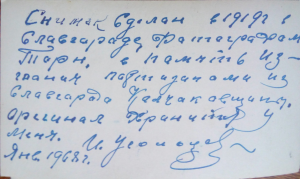 Снимак Сделан в 1919г в
Славгароде Фатографам
Тарн. в Память Из-
гнания партизанами из
Славгорода Калчаковщины.
Оригинал Хранится у
Меня.
Янв 1968г.